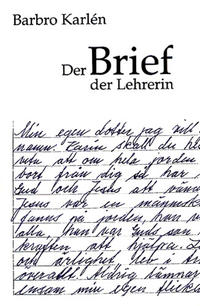 Barbro Karlén
Der Brief
der Lehrerin
Min egen dotter, jag vill
namn. Karin skall du he
veta att om hela jorden
bort från dig så har
Gud och Jesus att vänn
Jesus var en människ
fanns på jorden, han v
alla, han var Guds son
kraften att hjälpa
och ärlighet, lev i
överallt! Aldrig lämnar
ensam min egen flick